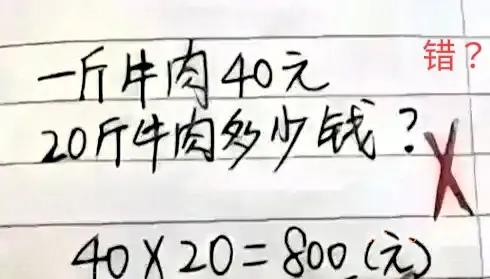 错？
一斤牛肉40元
20斤牛肉多少钱？
40×20=800(元)